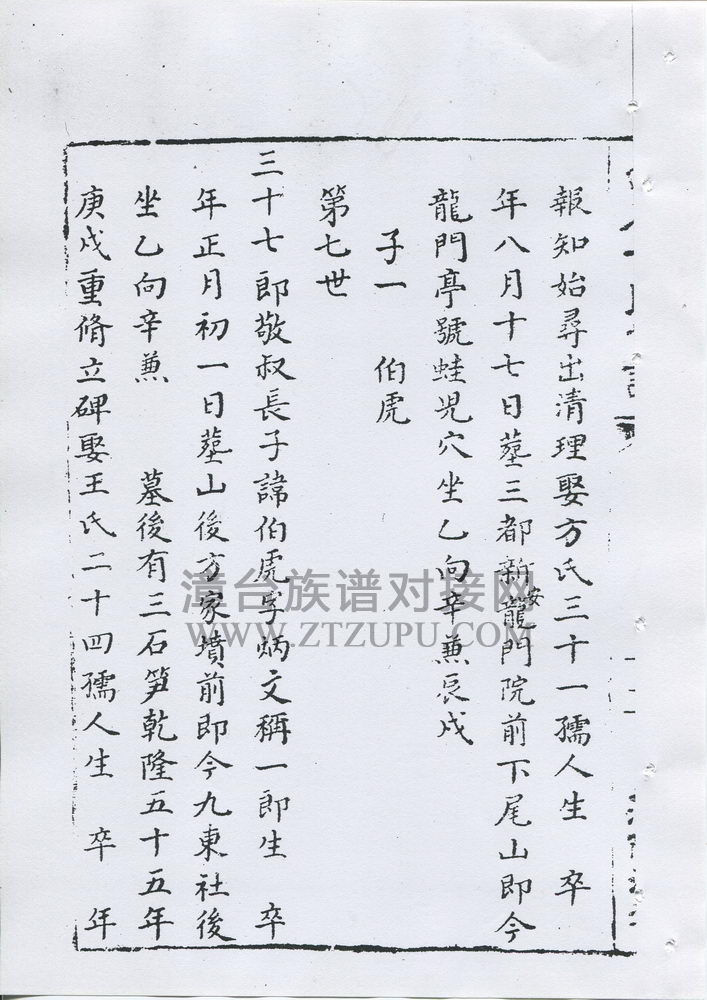 報知始尋出清理娶方氏三十一孺人生　卒
年八月十七日墓三都新安龍門院前下尾山即今
龍門亭號蛙児穴坐乙向辛兼辰戍
子一　伯虎
第七世
三十七郎敬叔長子諱伯虎字炳文稱一郎生　卒
年正月初一日墓山後方家墳前即今九東社後
坐乙向辛兼　　墓後有三石笋乾隆五十五年
庚戍重脩立碑娶王氏二十四孺人生　卒　年
漳台族谱对接网
WWW.ZTZUPU.COM